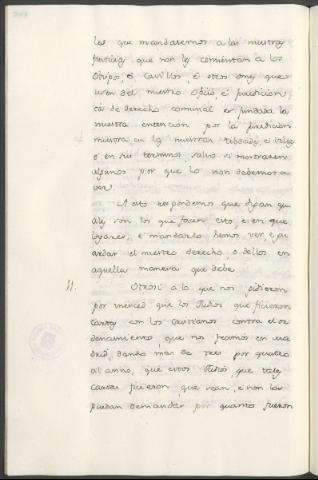 los que mandasemos a las nuestras
justicias que non les consientan a los
Obispos, é Cavillos, é otros omes que
usen del nuestro Oficio, é juridicion,
ca de derecho cominal es fundada la
nuestra entencion por la juridicion
nuestra en las nuestras cibdades, é villas
ó en sus terminos salvo si mostraren
algunos por que lo non debemos
ver.
A esto respondemos que digan qua
ales son los que facen esto e en que
logares, é mandarlo hemos veer, é gu
ardar el nuestro derecho, o dellos en
aquella manera que debe.
11. Otrosi á lo que nos pidieron
por merced que los Judios que ficieron
Cartas con los christianos contra el or
denamiento que nos fecimos en Ma
drid, dando mas de tres por quatro
al año, que estos Judios, que tales
Cartas ficieron, que sean, é non las
puedan demandar por quanto fueron